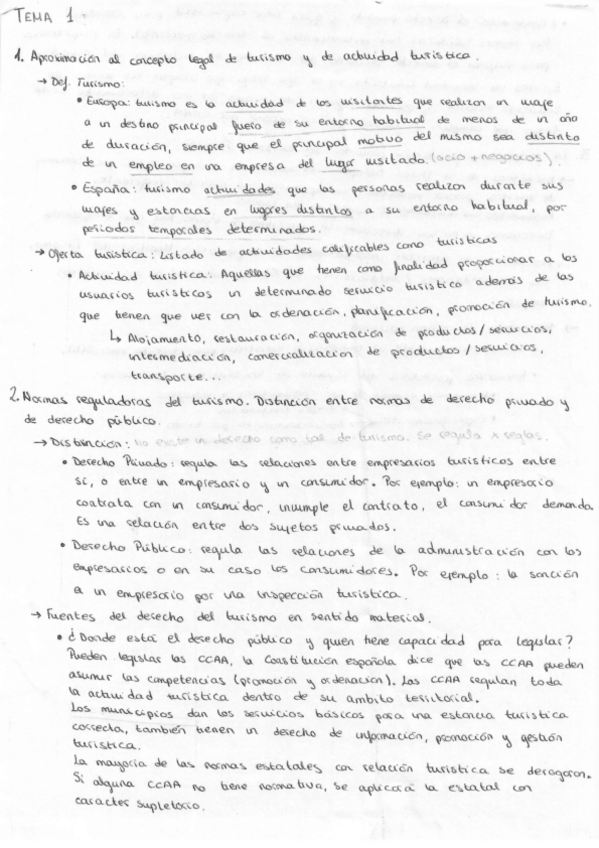 TEMA 1.
1. Aproximación al concepto legal de turismo y de actividad turística.
→ Def. Turismo:
• Europa: turismo es la actividad de los visitantes que realizan un viaje
a un destino principal fuera de su entorno habitual de menos de un año
de duración, siempre que el principal motivo del mismo sea distinto
de un empleo en una empresa del lugar visitado. (ocio + negocios).
• España: turismo actividades que las personas realizan durante sus
viajes y estancias en lugares distintos a su entorno habitual, por
periodos temporales determinados.
→ Oferta turística: Listado de actividades calificables como turísticas
• Actividad turística: Aquellas que tienen como finalidad proporcionar a los
usuarios turísticos un determinado servicio turístico además de las
que tienen que ver con la ordenación, planificación, promoción de turismo.
↳ Alojamiento, restauración, organización de productos / servicios,
intermediación, comercialización de productos / servicios,
transporte...
2. Normas reguladoras del turismo. Distinción entre normas de derecho privado y
de derecho público.
→ Distinción: no existe un derecho como tal de turismo. Se regula x reglas.
• Derecho Privado: regula las relaciones entre empresarios turísticos entre
sí, o entre un empresario y un consumidor. Por ejemplo: un empresario
contrata con un consumidor, incumple el contrato, el consumidor demanda.
Es una relación entre dos sujetos privados.
• Derecho Público: regula las relaciones de la administración con los
empresarios o en su caso los consumidores. Por ejemplo: la sanción
a un empresario por una inspección turística.
→ Fuentes del derecho del turismo en sentido material.
• ¿Donde está el derecho público y quien tiene capacidad para legislar?
Pueden legislar las CCAA, la Constitución española dice que las CCAA pueden
asumir las competencias (promoción y ordenación). Las CCAA regulan toda
la actividad turística dentro de su ambito territorial.
Los municipios dan los servicios básicos para una estancia turística
correcta, también tienen un derecho de información, promoción y gestión
turística.
La mayoría de las normas estatales con relación turística se derogaron.
Si alguna CCAA no tiene normativa, se aplicará la estatal con
caracter supletorio.